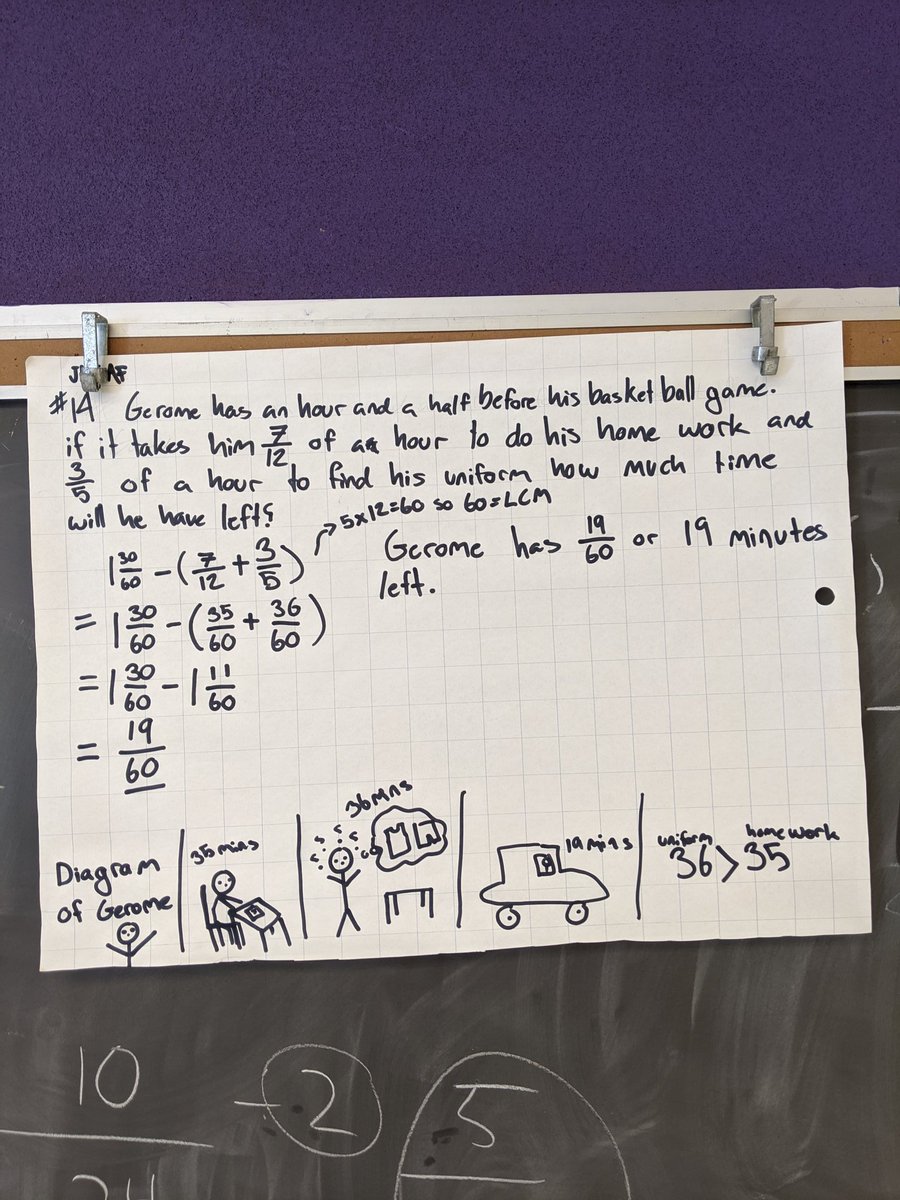 #14 Gerome has an hour and a half before his basket ball game.
if it takes him 7/12 of a hour to do his home work and
3/5 of a hour to find his uniform how much time
will he have left?
5x12=60 so 60=LCM
1 30/60 - (7/12 + 3/5)
= 1 30/60 - (35/60 + 36/60)
= 1 30/60 - 1 11/60
= 19/60
Gerome has 19/60 or 19 minutes
left.
Diagram
of Gerome
35 mins
36 mns
19 mins
uniform homework
36 > 35
10
- 2
5